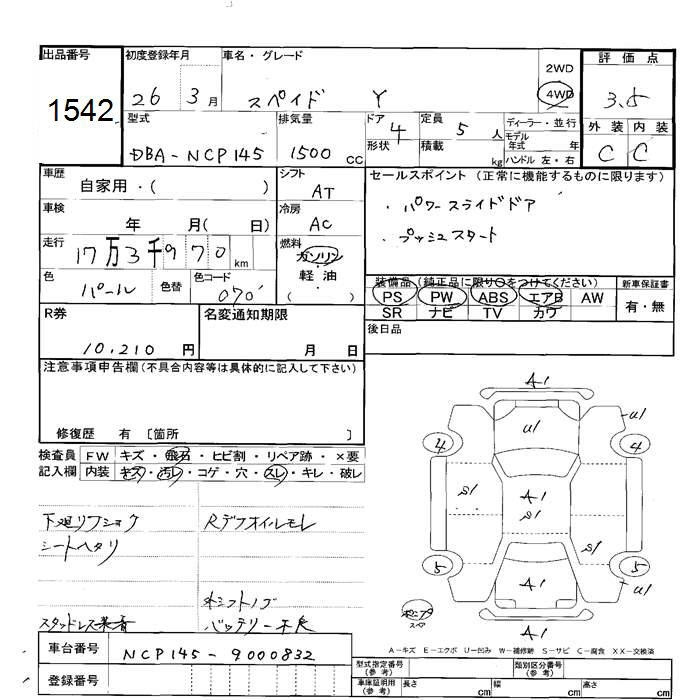 出品番号
1542
初度登録年月
26 3月
車名・グレード
スペイド Y
2WD
4WD
評価点
3.5
外装 内装
C C
型式
DBA-NCP145
排気量
1500 CC
ドア 4
形状
定員 5 人
積載 kg
ディーラー・並行
モデル
年式 年
ハンドル 左・右
車歴
自家用・( )
シフト
AT
セールスポイント (正常に機能するものに限ります)
・パワースライドドア
・プッシュスタート
車検
年 月( 日)
冷房
AC
走行
17万3千970 km
燃料
ガソリン
・
軽・油
( )
色
パール
色替
色コード
070
装備品 (純正品に限り○をつけてください)
PS PW ABS エアB AW
SR ナビ TV カワ
新車保証書
有・無
後日品
R券
10,210 円
名変通知期限
月 日
注意事項申告欄(不具合内容等は具体的に記入して下さい)
修復歴 有 〔箇所 〕
検査員
記入欄
FW キズ・飛石・ヒビ割・リペア跡・×要
内装 キズ・汚レ・コゲ・穴・スレ・キレ・破レ
下廻リフショク
Rデフオイルモレ
シートヘタリ
スタッドレス装着
バッテリー不良
A1
U1
U1
4
4
A1
S1
S1
S1
S1
5
5
A1
U1
A1
スペア
A-キズ E-エクボ U-凹み W-補修跡 S-サビ C-腐食 XX-交換済
車台番号
NCP145-9000832
登録番号
型式指定番号
(参考)
類別区分番号
(参考)
車庫証明用
(参考)
長さ cm
幅 cm
高さ cm